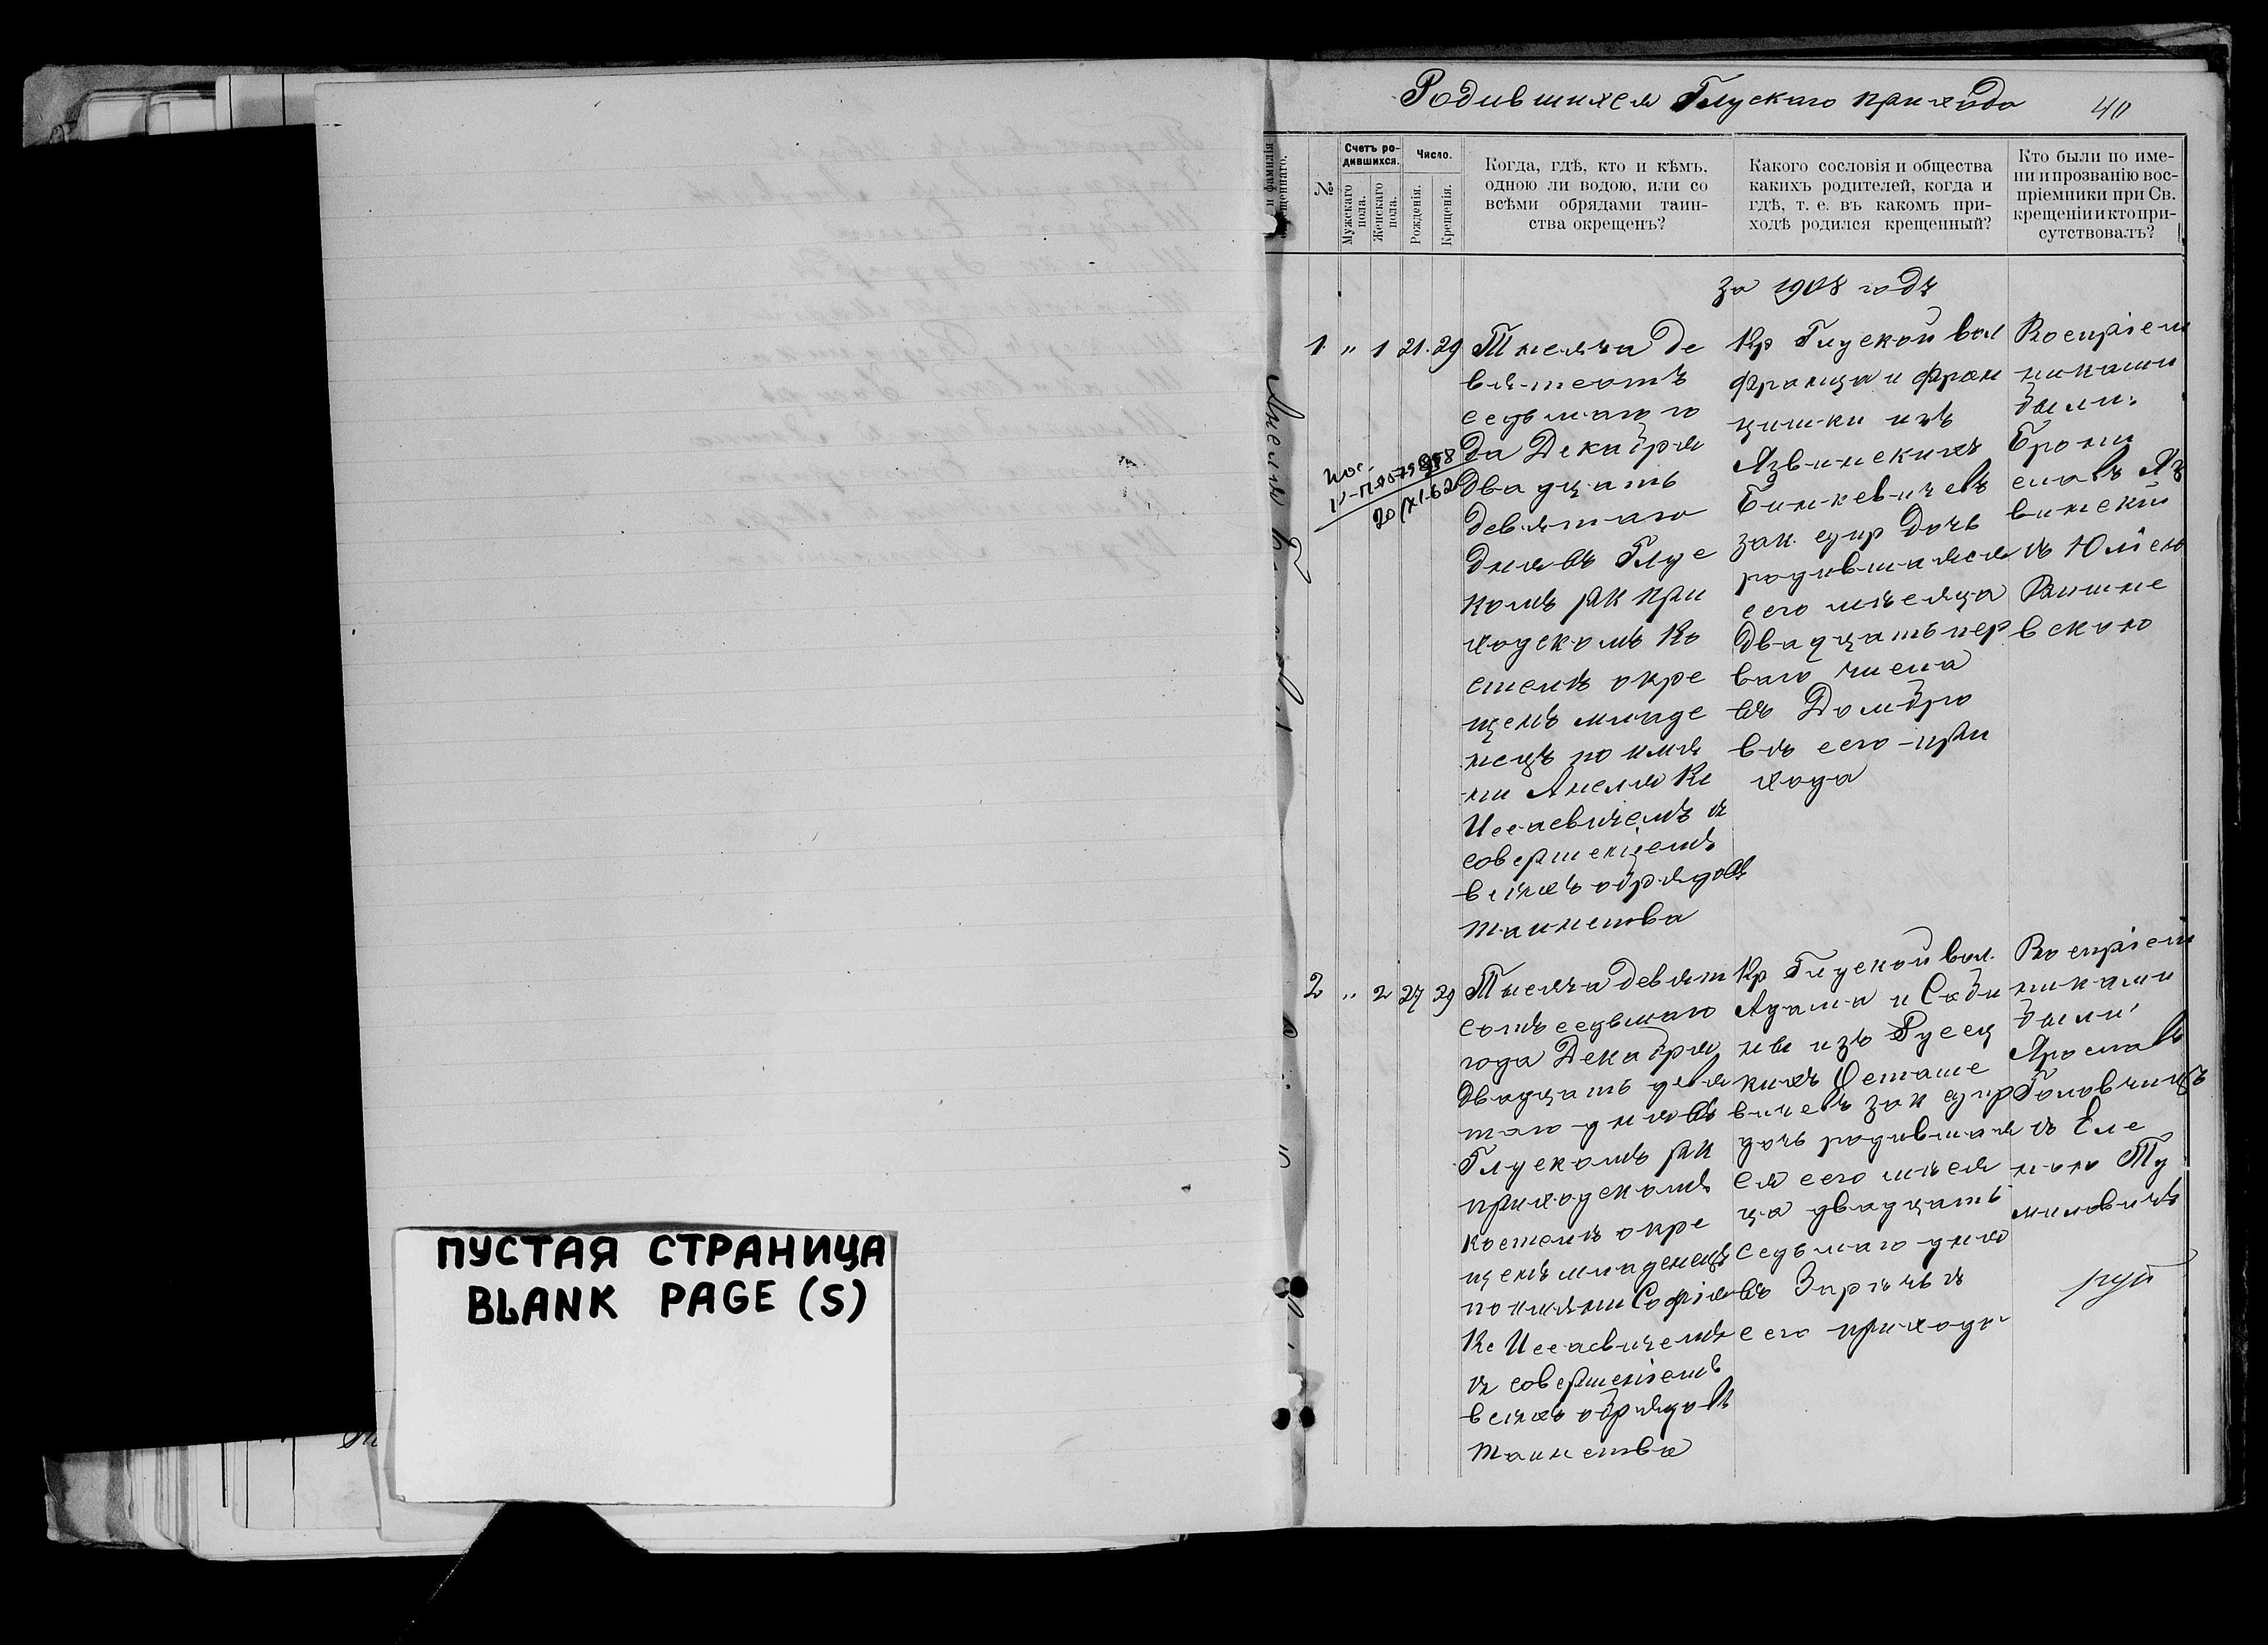 Родившихся Глускаго прихода
40
и фамилія
№
Счетъ ро-
дившихся.
Мужскаго пола.
Женскаго пола.
Число.
Рожденія.
Крещенія.
Когда, гдѣ, кто и кѣмъ,
одною ли водою, или со
всѣми обрядами таин-
ства окрещенъ?
Какого сословія и общества
какихъ родителей, когда и
гдѣ, т. е. въ какомъ при-
ходѣ родился крещенный?
Кто были по име-
ни и прозванію вос-
пріемники при Св.
крещеніи и кто при-
сутствовалъ?
за 1908 годъ
1. " 1 21. 29
Тысяча де
вятьсотъ
седьмаго го
да Декабря
двадцать
девятаго
дня въ Глус
комъ рк при
ходскомъ Ко
стелѣ окре
щенъ младе
нецъ по имя
ни Анеля Кс
Иссаевичемъ съ
совершенiемъ
всѣхъ обрядовъ
таинства
Кр Глуской вол
Франца и Фран
цишки изъ
Язвинскихъ
Бинкевичевъ
зак. супр дочь
родившаяся
сего мѣсяца
двадцать пер
ваго числа
въ Домбро
вѣ сего при
хода
Воспріем
никами
были:
Брони
славъ Яз
винскій
съ Юліею
Вишне
вскою
2 " 2 27 29
Тысяча девят
сотъ седьмаго
года Декабря
двадцать девя
таго дня въ
Глускомъ рк
приходскомъ
костелѣ окре
щенъ младенецъ
по имяни Софія
Кс Иссаевичемъ
съ совершеніемъ
всѣхъ обрядовъ
таинства
Кр Глуской вол.
Адама и Саби
ны изъ Русец
кихъ Осташе
вичевъ зак супр
дочь родившая
ся сего мѣся
ца двадцать
седьмаго дня
въ Зарѣчьѣ
сего прихода
Воспріем
никами
были:
Ярославъ
Головчицъ
съ Еле
ною Ту
миловичъ
ПУСТАЯ СТРАНИЦА
BLANK PAGE (S)